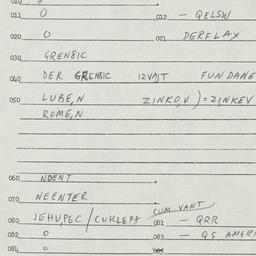 011 O 012 – QELSW
020 O 021 DERFLAX
030 GRENSIC
040 DER GRENSIC 12VAJT FUNDANE
050 LUBE,N ZINKO,V ) = ZINKEV
ROME,N
060 NOENT
070 NEENTER
CUM VANT
080 JEHUPEC / CURLEPT 081 – QRR
082 O 083 – QS AMERI
084 O